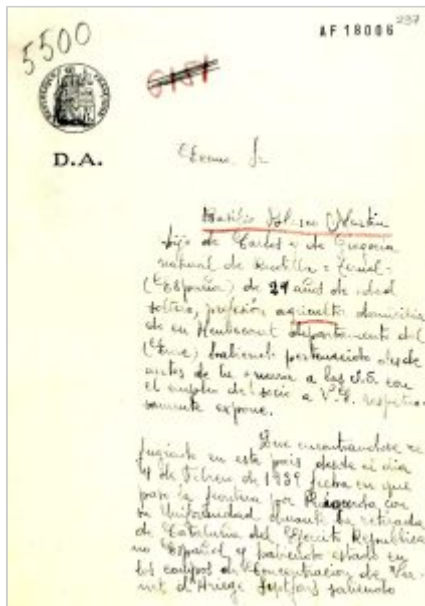 237
AF 18006
5500
6151
D.A.
Excmo. Sr
Basilio Martin
hijo de Carlos y de Gregoria
natural de Teruel
(España) de 29 años de edad
soltero, profesión agricultor domicilia
do en departamento del
(Eure) habiendo pertenecido desde
antes de la guerra a las J.S. con
el empleo de socio a V.E. respetuo
samente expone.
Que encontrandose re
fugiado en este pais desde el dia
de Febrero de 1939 fecha en que
paso la frontera por Puigcerda con
su Unidad durante la retirada
de Cataluña del Ejercito Republica
no Español, y habiendo estado en
los campos de Concentracion de Ver-
net d'Ariege Septfons habiendo